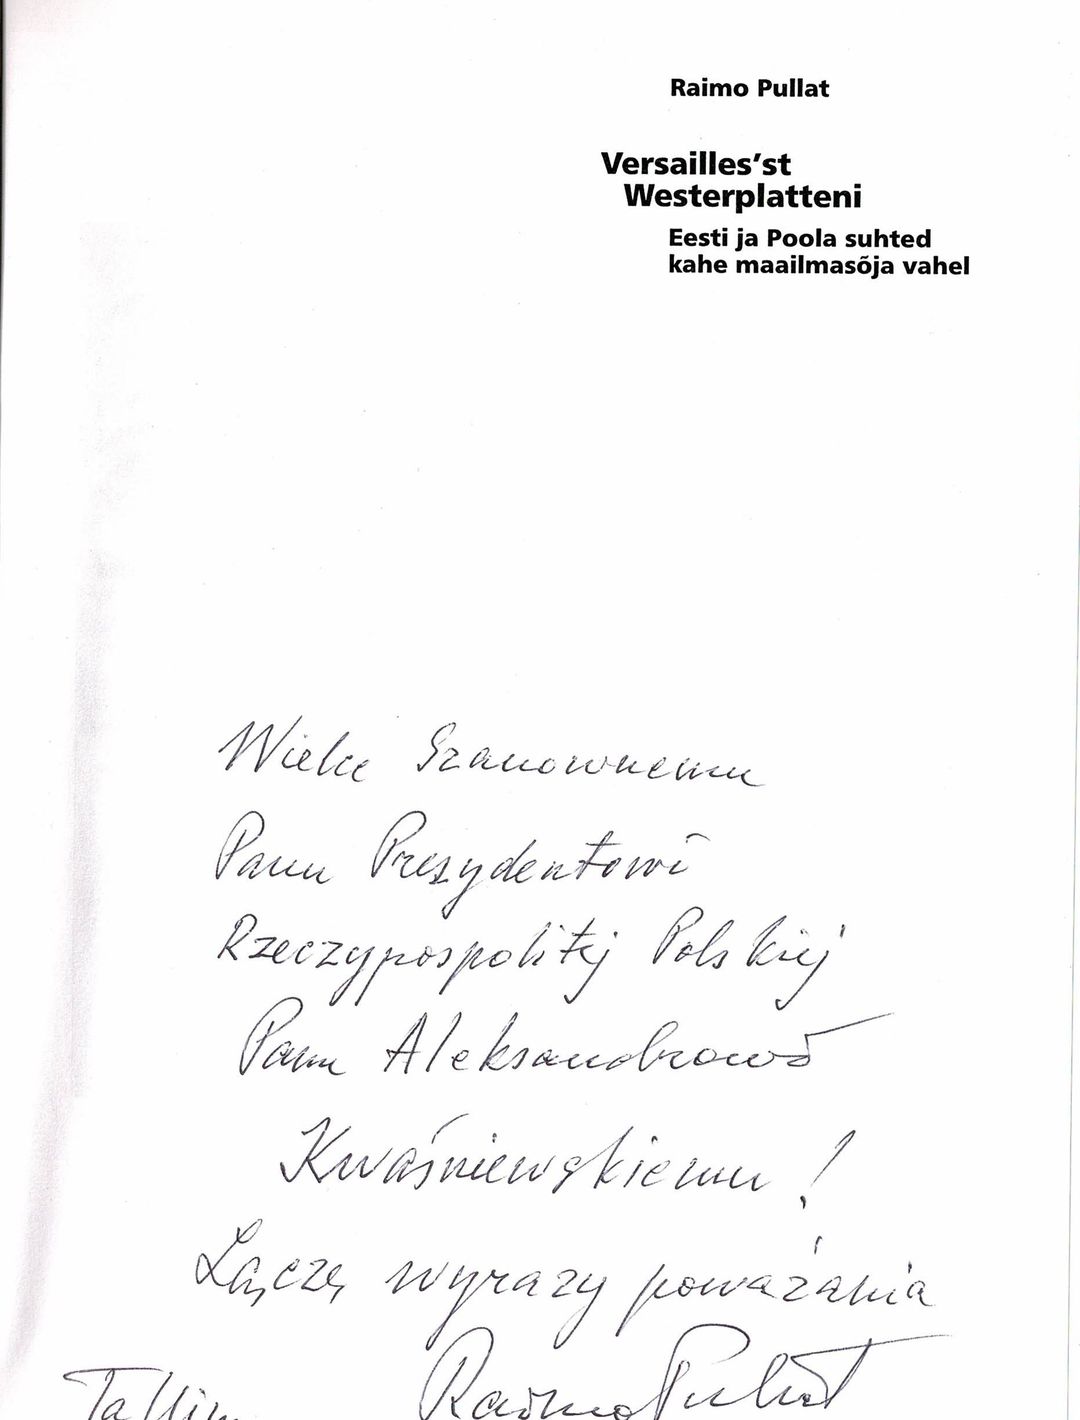 Raimo Pullat
Versailles'st
Westerplatteni
Eesti ja Poola suhted
kahe maailmasõja vahel
Wielce Szanownemu
Panu Prezydentowi
Rzeczypospolitej Polskiej
Panu Aleksandrowi
Kwaśniewskiemu!
Łączę wyrazy poważania
Raimo Pullat
Tallinn